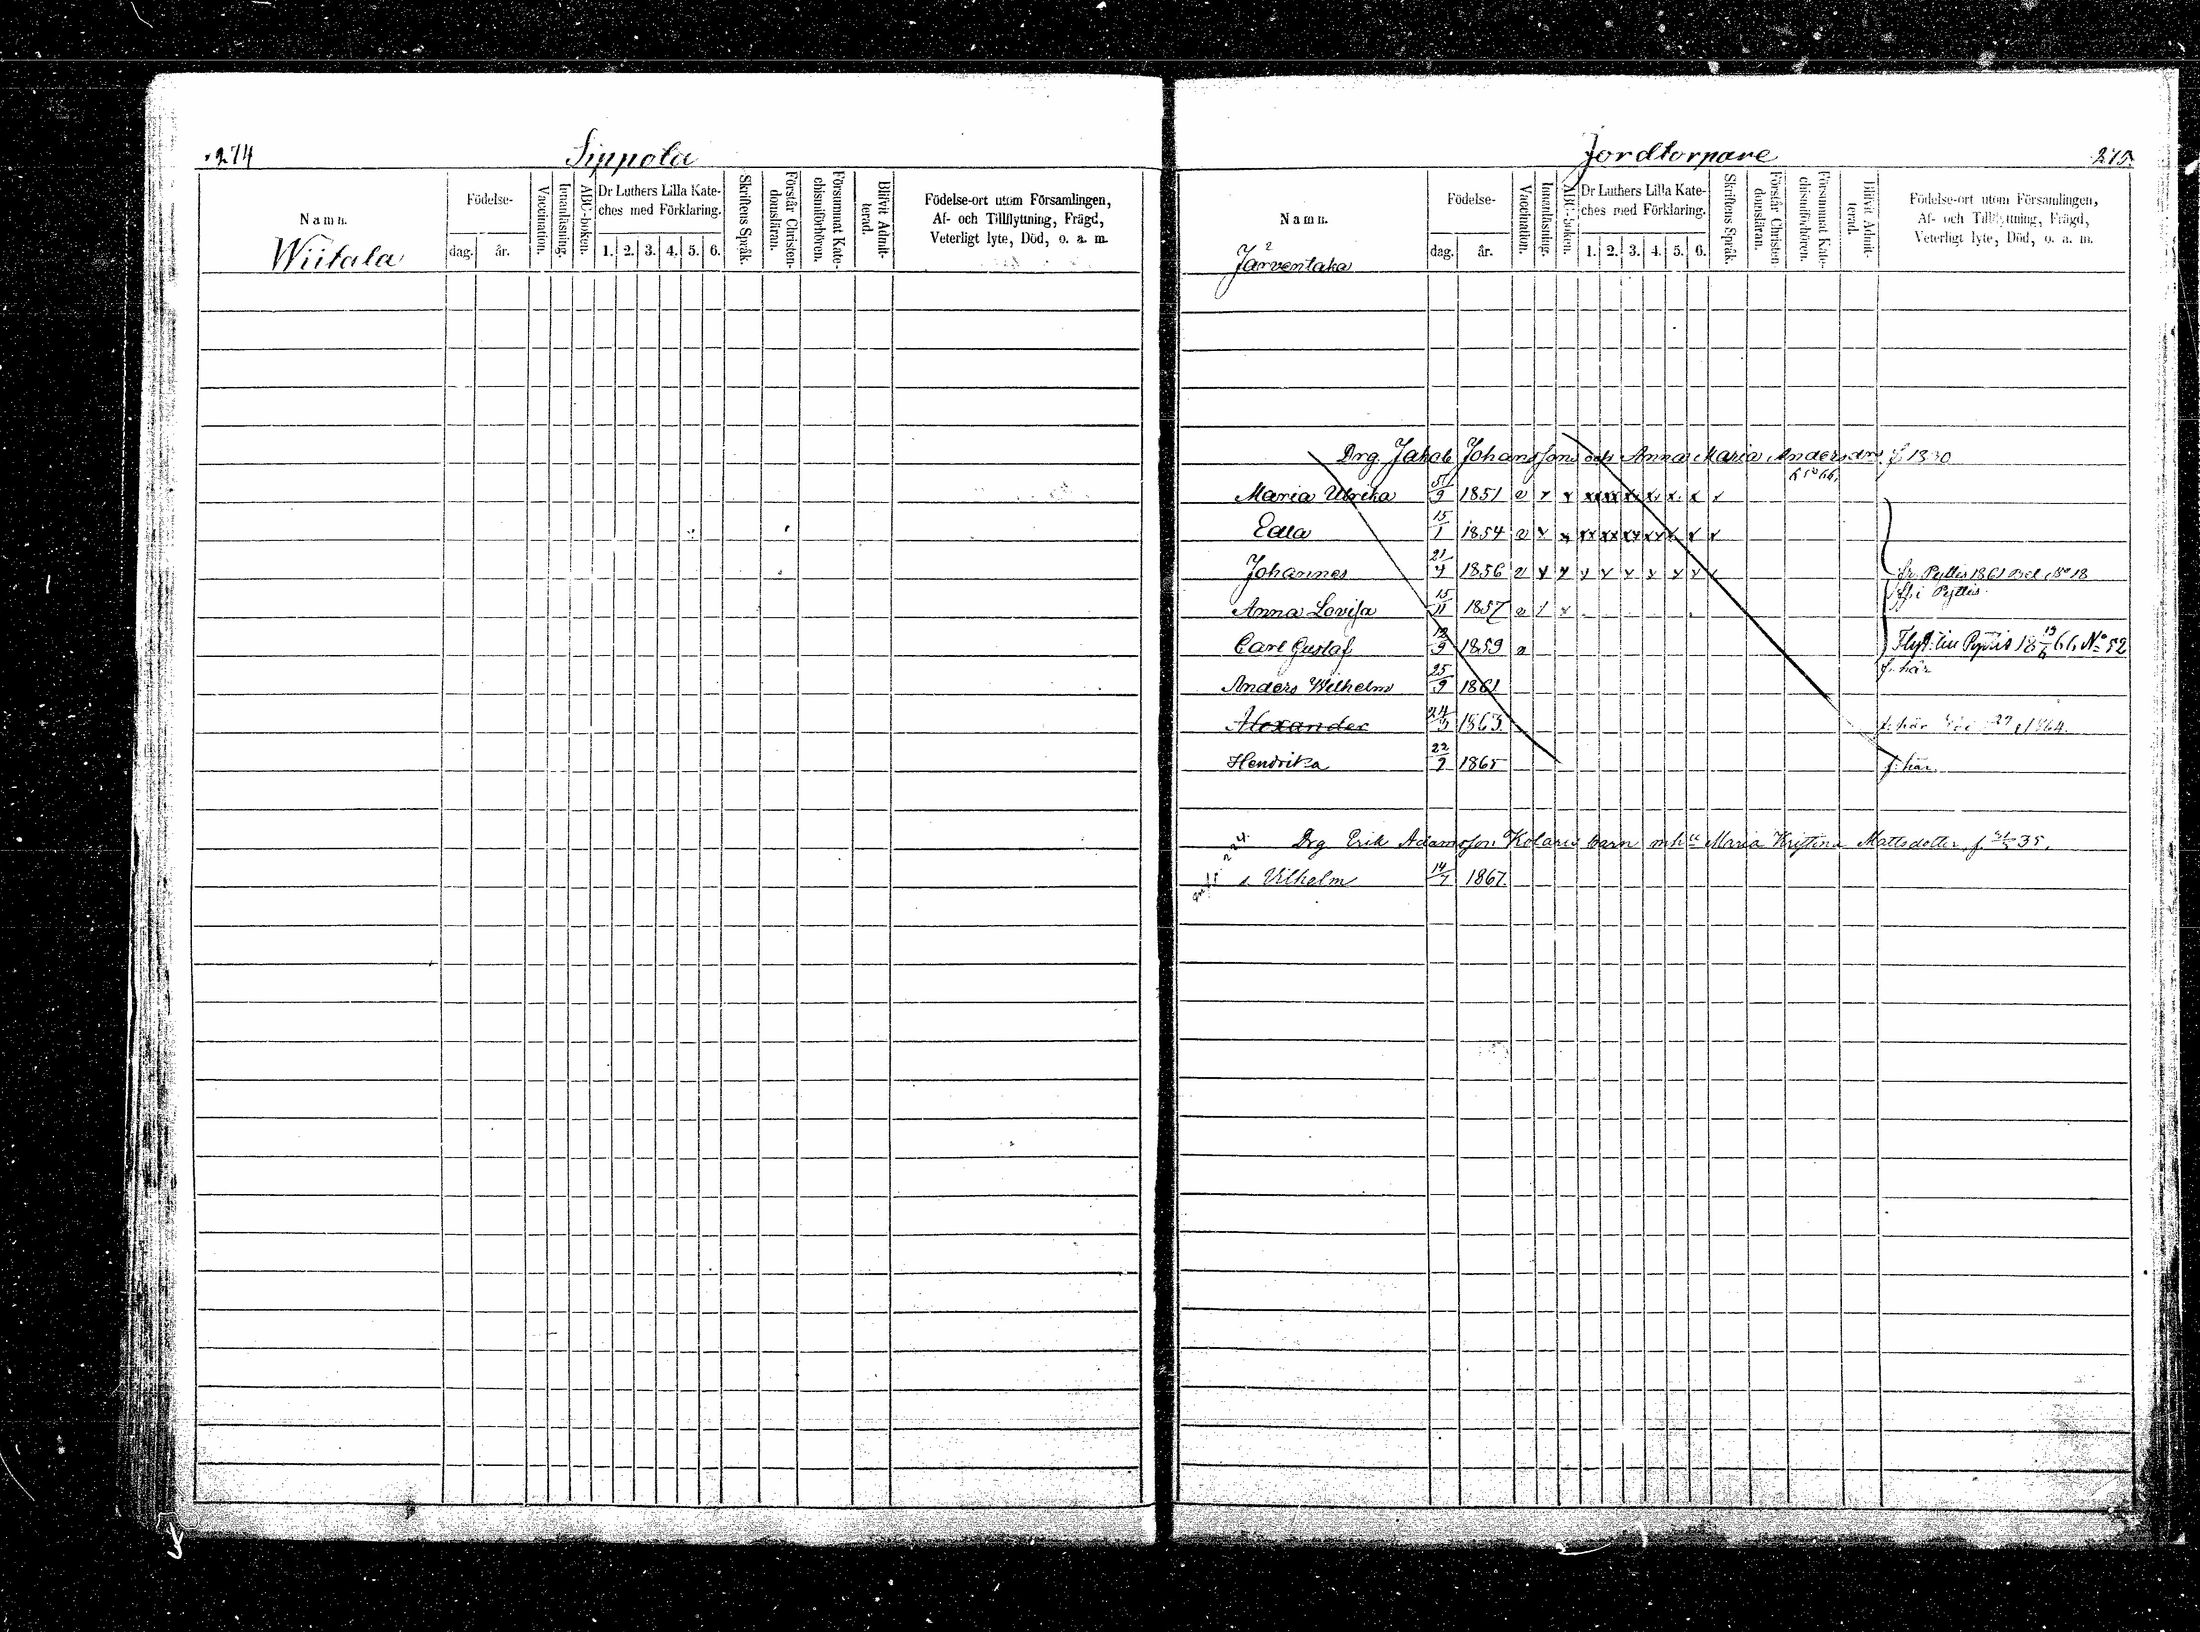 274 Sippola
Namn. Födelse- Vaccination. Innanläsning. ABC-boken. Dr Luthers Lilla Kate-ches med Förklaring. Skriftens Språk. Förstår Christen-domsläran. Försummat Kate-chismiförhören. Blifvit Admit-terad. Födelse-ort utom Församlingen, Af- och Tillflyttning, Frägd, Veterligt lyte, Död, o. a. m.
Wiitala dag. år. 1. 2. 3. 4. 5. 6.
Jordtorpare 275.
Namn. Födelse- Vaccination. Innanläsning. ABC-boken. Dr Luthers Lilla Kate-ches med Förklaring. Skriftens Språk. Förstår Christen-domsläran. Försummat Kate-chismiförhören. Blifvit Admit-terad. Födelse-ort utom Församlingen, Af- och Tillflyttning, Frägd, Veterligt lyte, Död, o. a. m.
Järventaka dag. år. 1. 2. 3. 4. 5. 6.
Drg. Jakob Johansson och Anna Maria Andersdr f. 1830
Maria Ulrika 9 1851
Edla 15/1 1854
Johannes 21/4 1856 fr. Pyttis 1861 Bet. No 18
Anna Lovisa 15/11 1857 f. i Pyttis
Carl Gustaf 12/9 1859 Flytt. till Pyttis 18 19/6 66 No 52
Anders Wilhelm 25/9 1861 f. här
Alexander 24/3 1863. f. här 1864.
Hendrika 22/9 1865 f. här.
Drg Erik Adamsson Kolaris barn m h u Maria Kristina Mattsdotter, f 35.
s. Vilhelm 14/7 1867.
224